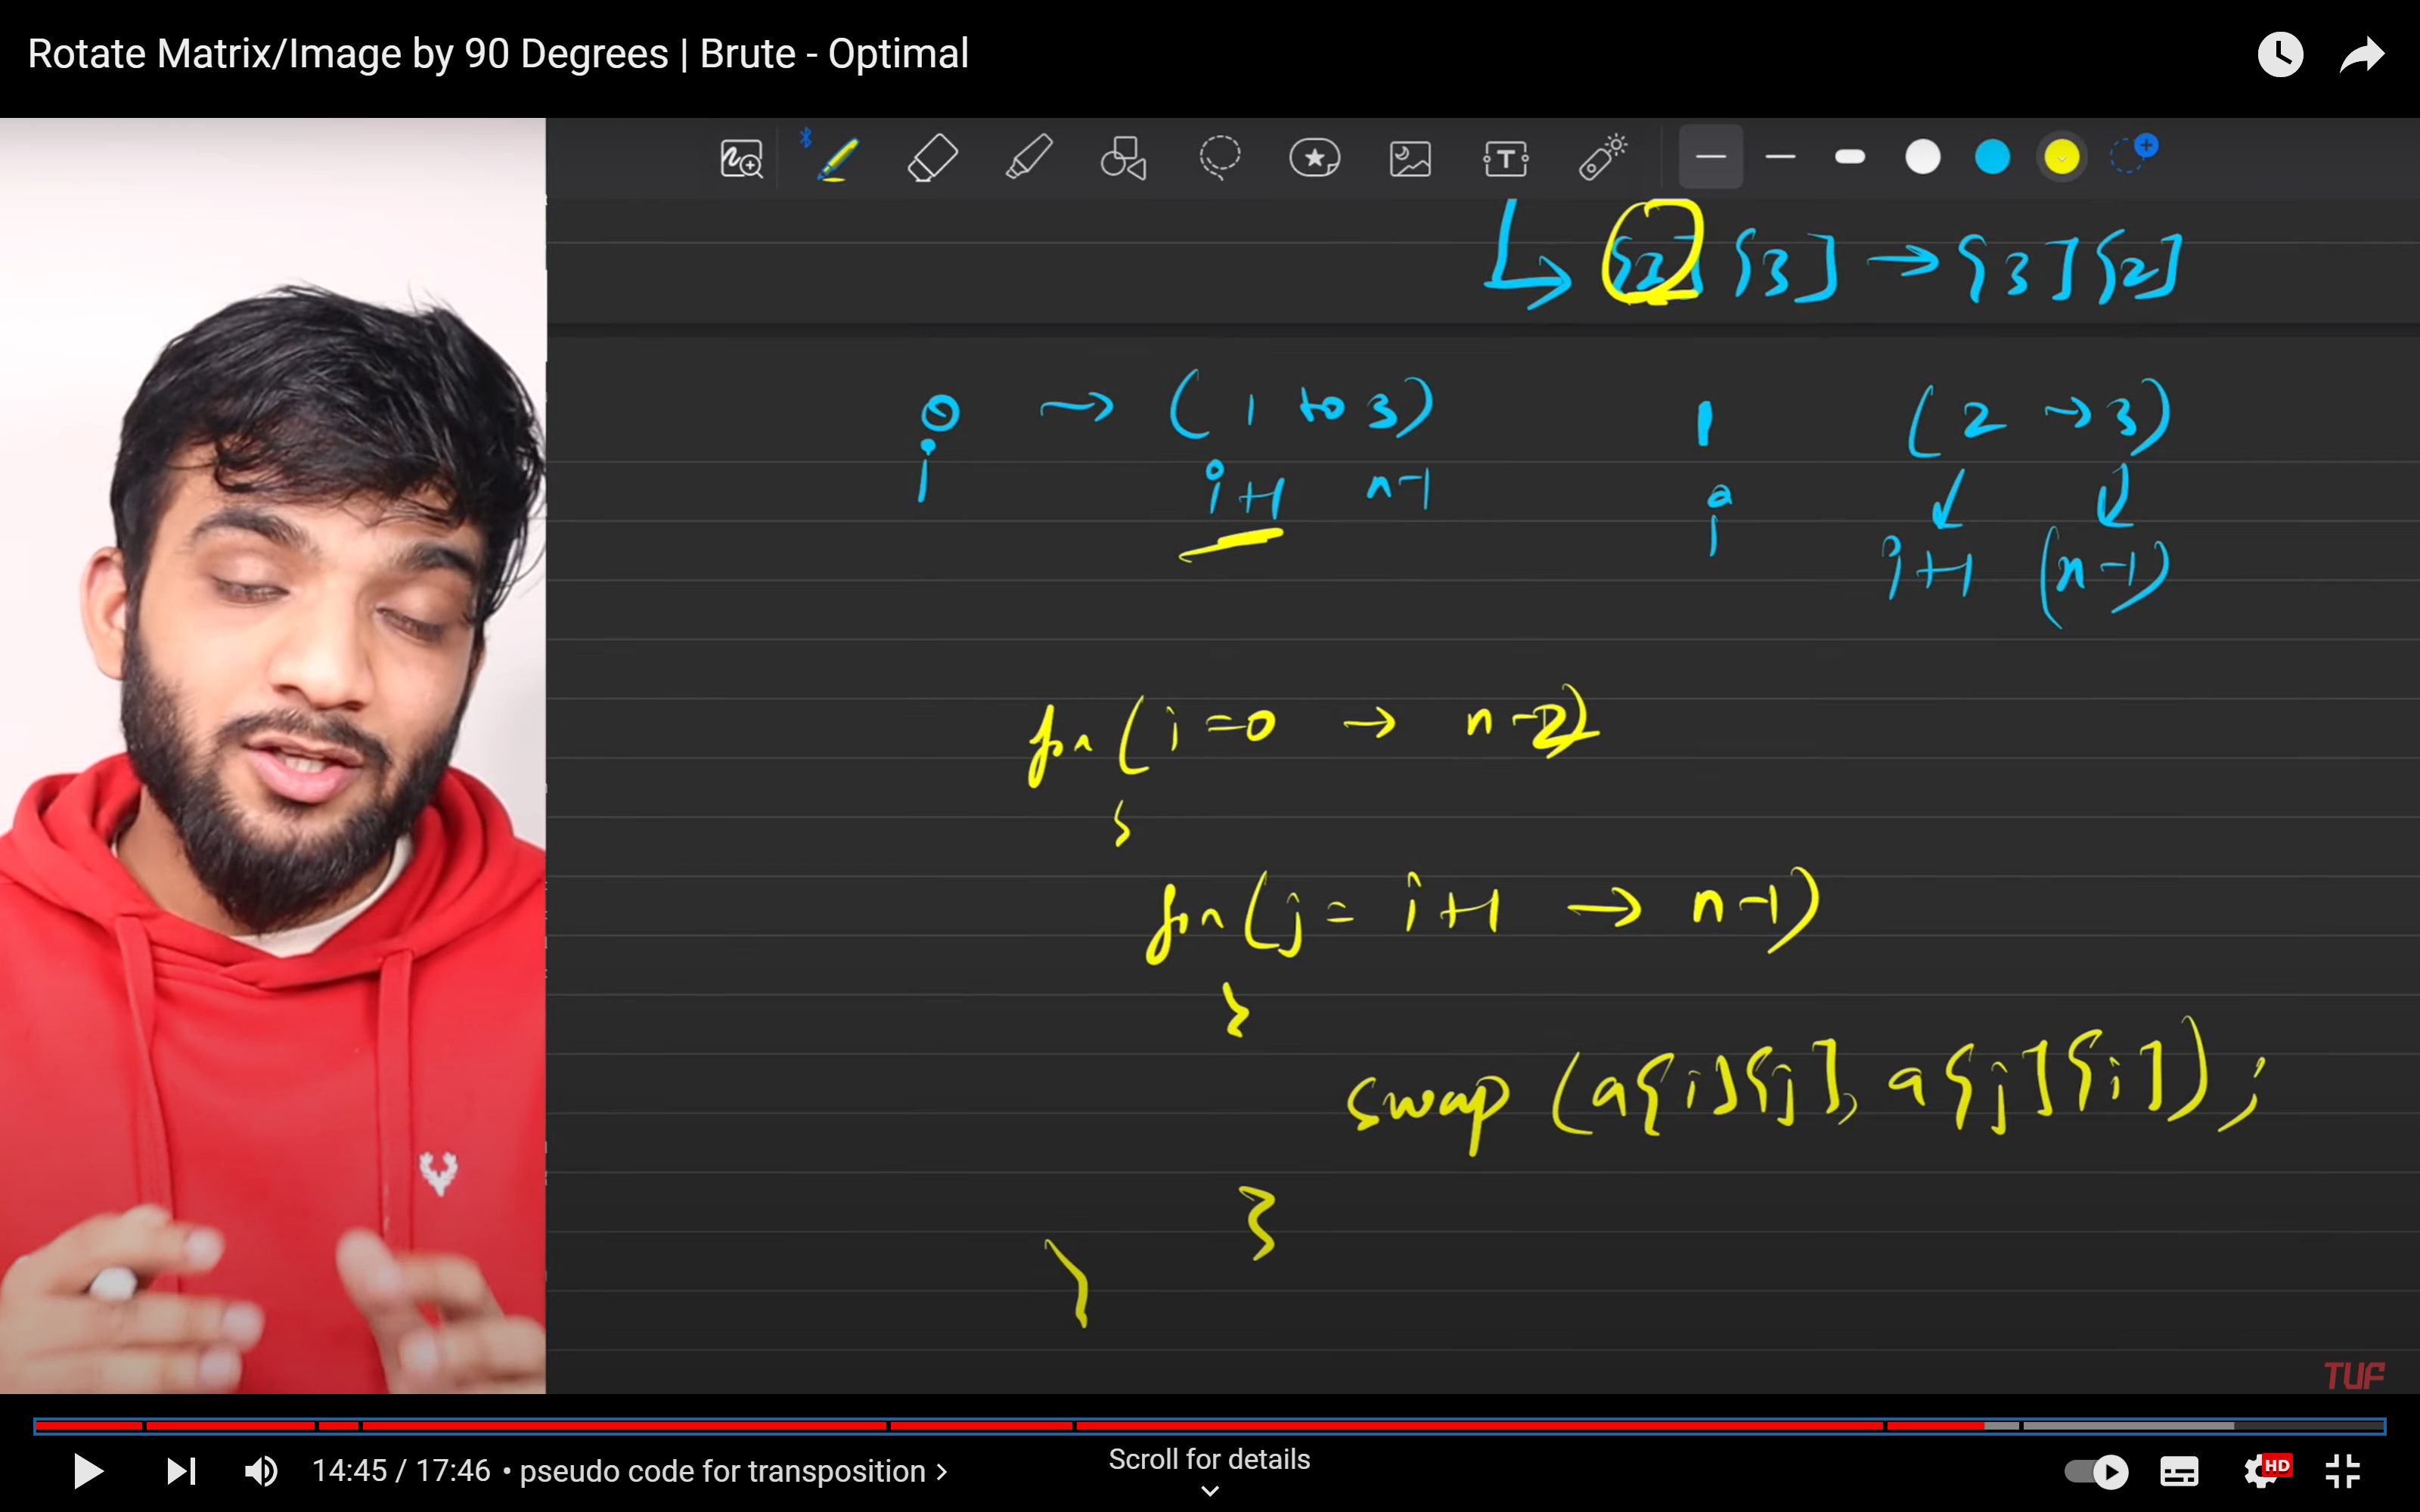 Rotate Matrix/Image by 90 Degrees | Brute - Optimal
T
[2] [3] → [3][2]
0 → (1 to 3) 1 (2 → 3)
i i+1 n-1 i i+1 (n-1)
for (i = 0 → n-2)
{
for (j = i+1 → n-1)
{
swap (a[i][j], a[j][i]);
}
}
TUF
14:45 / 17:46 • pseudo code for transposition >
Scroll for details
HD